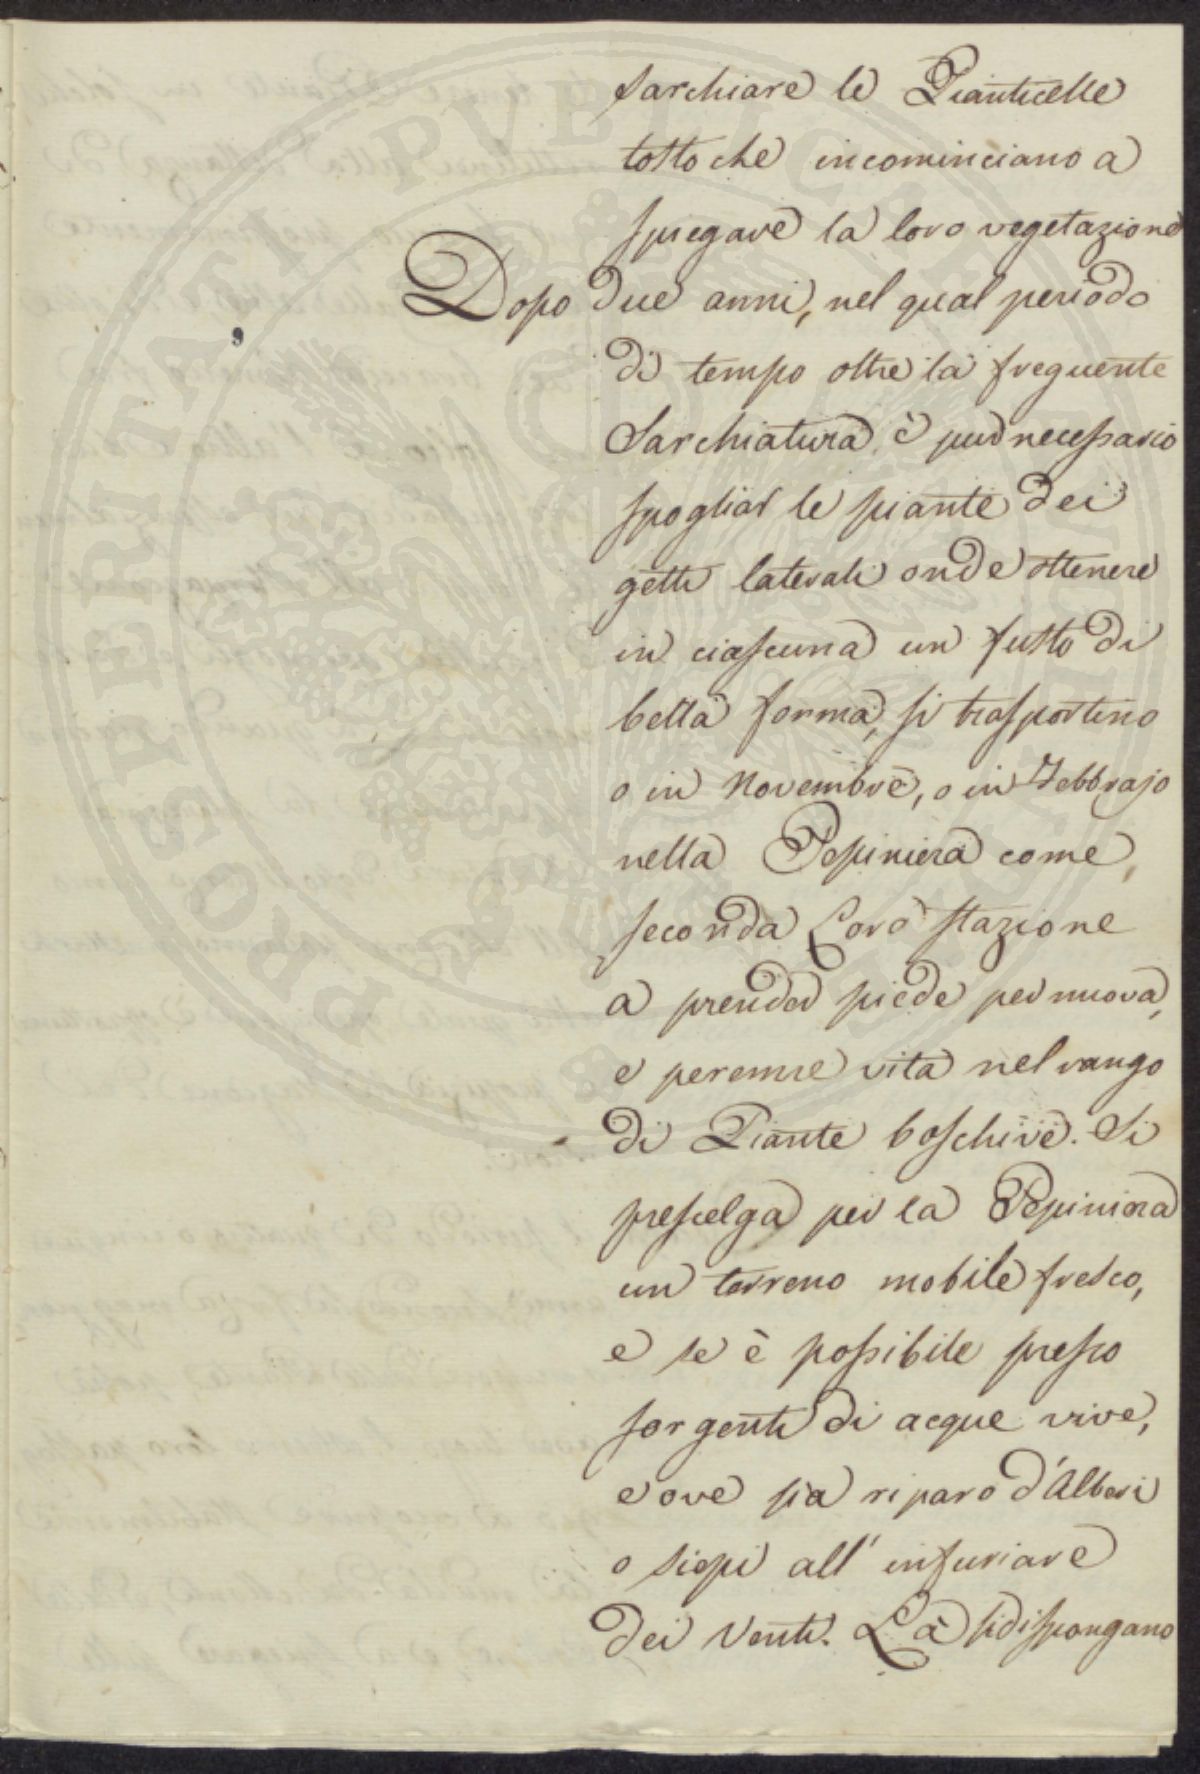 sarchiare le Pianticelle
tosto che incominciano a
spiegare la loro vegetazione
Dopo due anni, nel qual periodo
di tempo oltre la frequente
Sarchiatura è pur necessario
spogliar le piante dei
getti laterali onde ottenere
in ciascuna un fusto di
bella forma, si trasportino
o in Novembre, o in Febbrajo
nella Pepiniera come,
seconda Loro stazione
a prender piede per nuova,
e perenne vita nel rango
di Piante boschive. Si
prescelga per la Pepiniera
un terreno mobile fresco,
e se è possibile presso
sorgenti di acque vive,
e ove sia riparo d'Alberi
o siepi all' infuriare
dei Venti. Là si dispongano
PROSPERITATI PVBLICAE